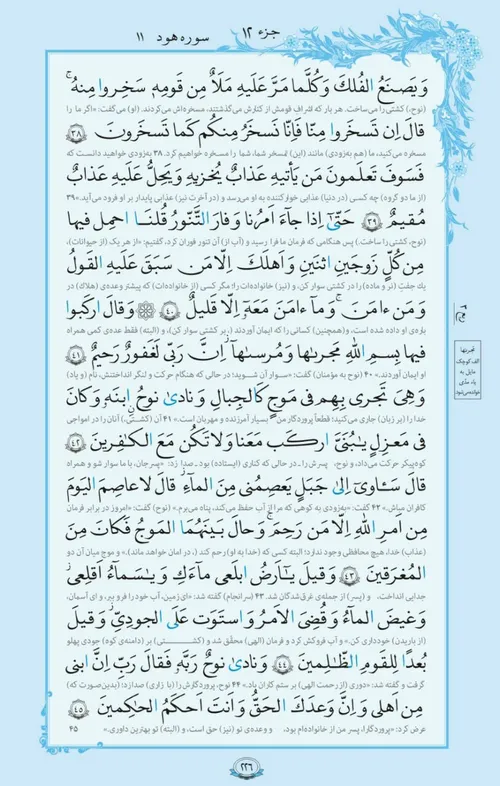 جزء ۱۲
سوره هود
۱۱
وَيَصنَعُ الفُلكَ وَكُلَّما مَرَّ عَلَيهِ مَلَأٌ مِن قَومِهِ سَخِروا مِنهُ ۚ
(نوح،) کشتی را می‌ساخت. هر بار که اشراف قومش از کنارش می‌گذشتند، مسخره‌اش می‌کردند. (او) می‌گفت: «اگر ما را
قالَ اِن تَسخَروا مِنّا فَاِنّا نَسخَرُ مِنكُم كَما تَسخَرونَ ۳۸
مسخره می‌کنید، ما (هم به‌زودی) مانند (این) تمسخر شما، شما را مسخره خواهیم کرد. ۳۸ به‌زودی خواهید دانست که
فَسَوفَ تَعلَمونَ مَن يَأتيهِ عَذابٌ يُخزيهِ وَيَحِلُّ عَلَيهِ عَذابٌ
(از ما دو گروه) چه کسی (در دنیا) عذابی خوارکننده به او می‌رسد و (در آخرت نیز) عذابی پایدار بر او فرود می‌آید.» ۳۹
مُقيمٌ ۳۹ حَتّىٰ اِذا جاءَ اَمرُنا وَفارَ التَّنّورُ قُلنَا احمِل فيها
(نوح، کشتی را ساخت.) پس هنگامی که فرمان ما فرا رسید و (آب از) آن تنور فوران کرد، گفتیم: «از هر یک (از حیوانات)،
مِن كُلٍّ زَوجَينِ اثنَينِ وَاَهلَكَ اِلّا مَن سَبَقَ عَلَيهِ القَولُ
یك جفتِ (نر و ماده) را در کشتی سوار کن، و (نیز) خانواده‌ات را؛ مگر کسی (از خانواده‌ات) که پیشتر وعده‌ی (هلاک) در
وَمَن ءامَنَ ۚ وَما ءامَنَ مَعَهُ اِلّا قَليلٌ ۴۰ وَقالَ اركَبوا
باره‌ی او داده شده است، و (همچنین) کسانی را که ایمان آوردند (بر کشتی سوار کن).»، و (البته) فقط عده‌ی کمی همراه
فيها بِسمِ اللهِ مَجرىٰها وَمُرسىٰها ۚ اِنَّ رَبّي لَغَفورٌ رَحيمٌ ۴۱
او ایمان آوردند. ۴۰ (نوح به مؤمنان) گفت: «سوار آن شوید؛ در حالی که هنگام حرکت و لنگر انداختنش، نام (و یاد)
وَهِيَ تَجري بِهِم في مَوجٍ كَالجِبالِ وَنادىٰ نوحٌ ابنَهُ وَكانَ
خدا را (بر زبان) جاری می‌کنید؛ قطعاً پروردگار من بسیار آمرزنده و مهربان است.» ۴۱ آن (کشتی،) آنان را در امواجی
في مَعزِلٍ يٰبُنَيَّ اركَب مَعَنا وَلا تَكُن مَعَ الكٰفِرينَ ۴۲
کوه‌پیکر حرکت می‌داد، و نوح، پسرش را ـ در حالی که کناری (ایستاده) بود ـ صدا زد: «پسرجان، با ما سوار شو و همراه
قالَ سَـٔاوي اِلىٰ جَبَلٍ يَعصِمُني مِنَ الماءِ ۚ قالَ لا عاصِمَ اليَومَ
کافران مباش.» ۴۲ گفت: «به‌زودی به کوهی که مرا از آب حفظ می‌کند، پناه می‌برم.» (نوح) گفت: «امروز در برابر فرمان
مِن اَمرِ اللهِ اِلّا مَن رَحِمَ ۚ وَحالَ بَينَهُمَا المَوجُ فَكانَ مِنَ
(عذاب) خدا، هیچ محافظی وجود ندارد؛ البته کسی که (خدا به او) رحم کند (، در امان خواهد ماند).» و موج میان آن دو
المُغرَقينَ ۴۳ وَقيلَ يٰاَرضُ ابلَعي ماءَكِ وَيٰسَماءُ اَقلِعي
جدایی انداخت، و (پسر) از جمله‌ی غرق‌شدگان شد. ۴۳ (سرانجام) گفته شد: «ای زمین، آب خود را فرو بر، و ای آسمان،
وَغيضَ الماءُ وَقُضِيَ الاَمرُ وَاستَوَت عَلَى الجودِيِّ ۖ وَقيلَ
(از باریدن) خودداری کن.» و آب فروکش کرد و فرمان (الهی) محقّق شد و (کشتی) بر (دامنه‌ی کوه) جودی پهلو
بُعدًا لِلقَومِ الظّٰلِمينَ ۴۴ وَنادىٰ نوحٌ رَبَّهُ فَقالَ رَبِّ اِنَّ ابني
گرفت و گفته شد: «دوری (از رحمت الهی) بر ستم کاران باد.» ۴۴ نوح، پروردگارش را (با زاری) صدا زد: (بدین‌صورت که)
مِن اَهلي وَاِنَّ وَعدَكَ الحَقُّ وَاَنتَ اَحكَمُ الحٰكِمينَ ۴۵
عرض کرد: «پروردگارا، پسر من از خانواده‌ام بود، و وعده‌ی تو (نیز) حق است، و (البته) تو بهترین داوری.» ۴۵
۲۲۶